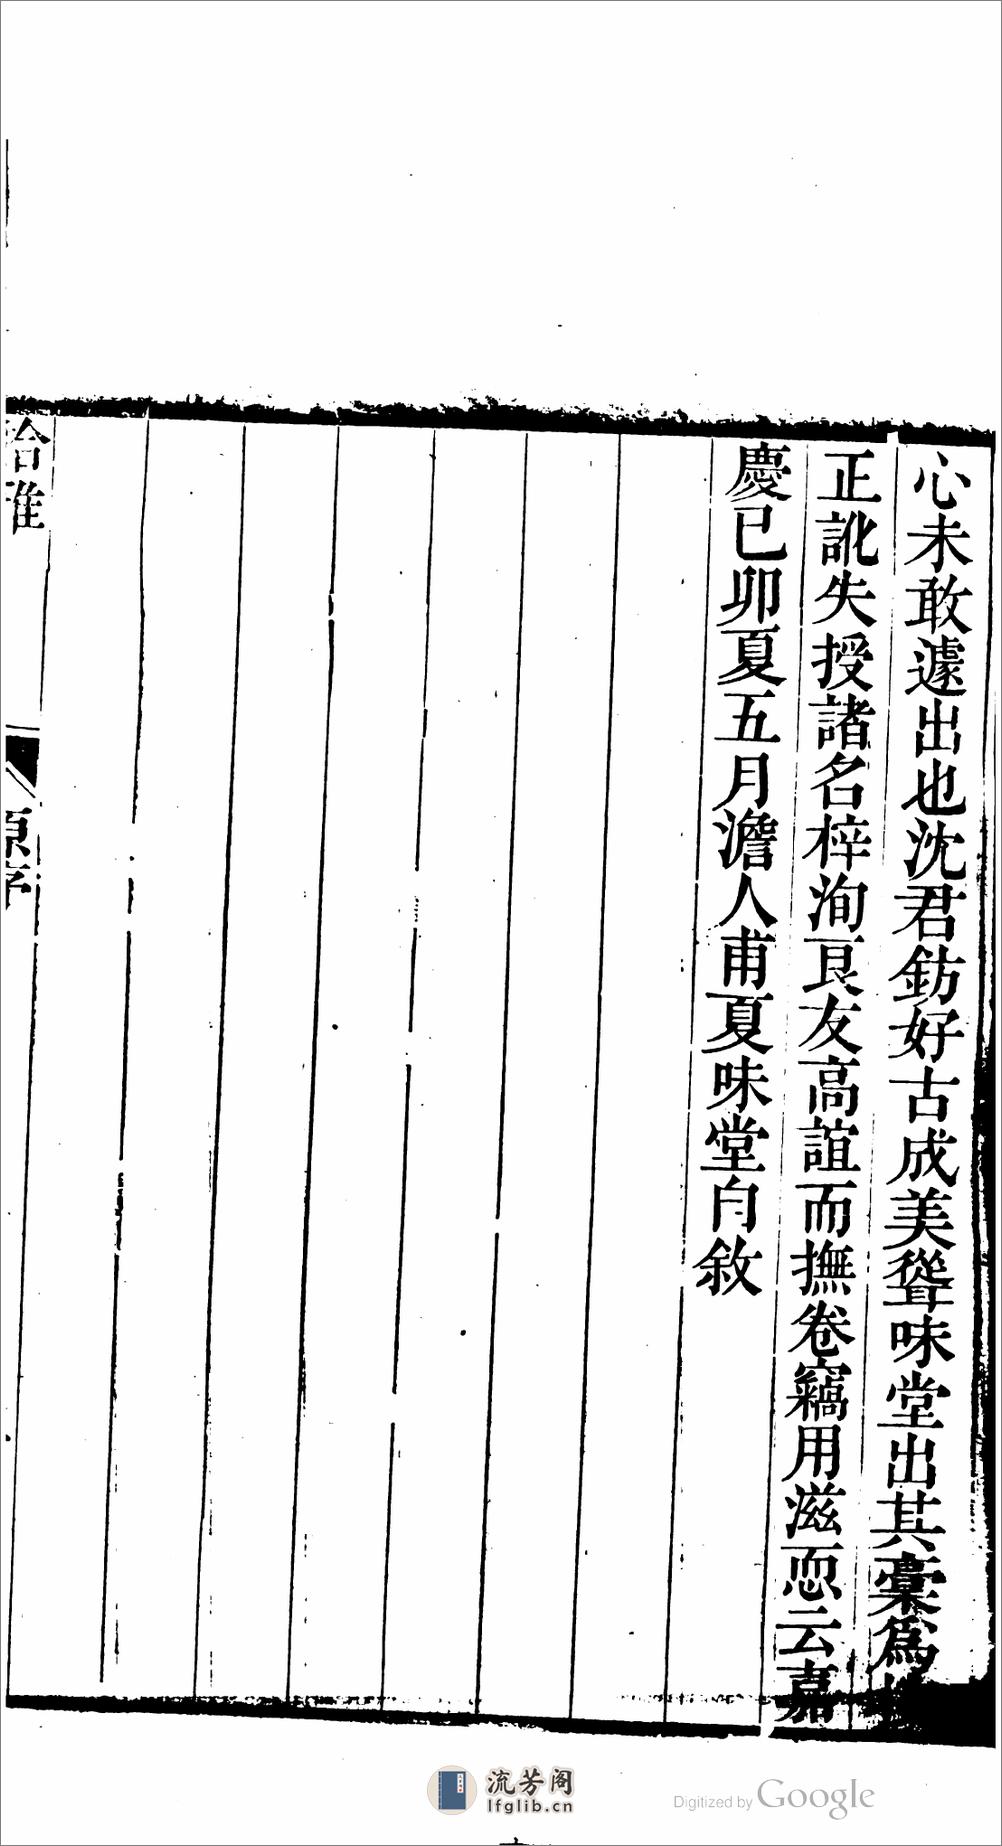 心未敢遽出也沈君鈁好古成美聳味堂出其稾爲
正訛失授諸名梓洵良友高誼而撫卷竊用滋恧云嘉
慶己卯夏五月澹人甫夏味堂自敘
拾雅
原序
流芳阁
lfglib.cn
Digitized by Google